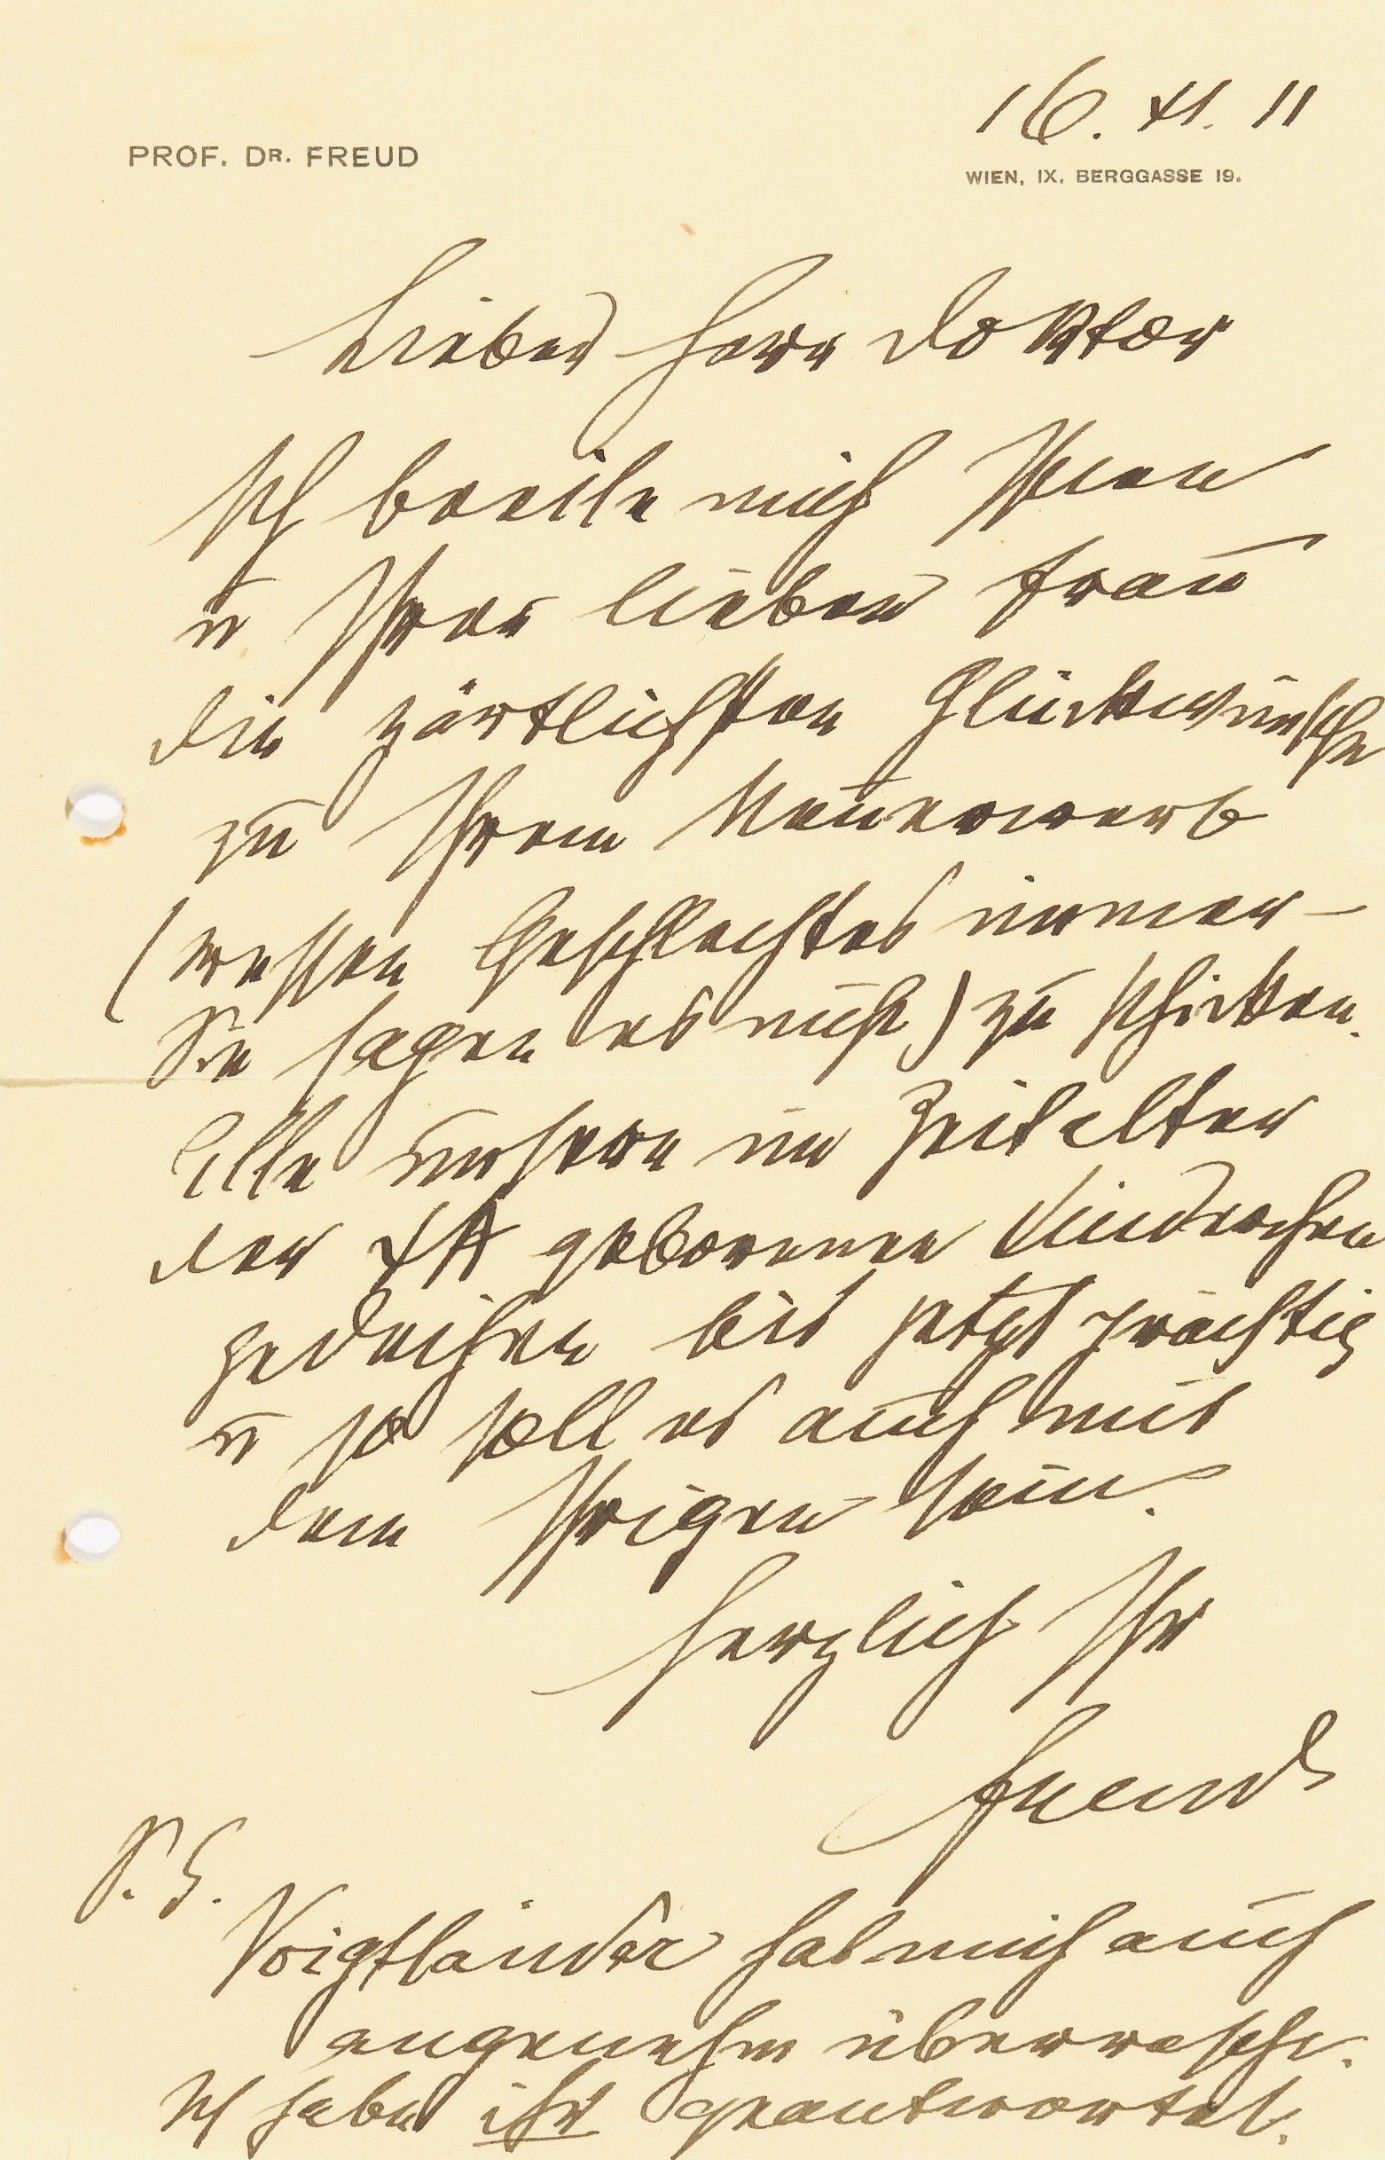 16. XI. 11
PROF. DR. FREUD
WIEN, IX. BERGGASSE 19.
Lieber Herr Doktor
Ich beeile mich Ihnen
u Ihrer lieben Frau
die zärtlichsten Glückwünsche
zu Ihrem Neuerwerb
(wessen Geschlechtes immer –
Sie sagen es nicht) zu schicken.
Alle unsere im Zeitalter
der ΨA geborenen Kinderchen
gedeihen bis jetzt prächtig
u so soll es auch mit
dem Ihrigen sein.
Herzlich Ihr
Freud
P. S.
Voigtländer hat mich auch
angenehm überrascht.
Ich habe ihr geantwortet.